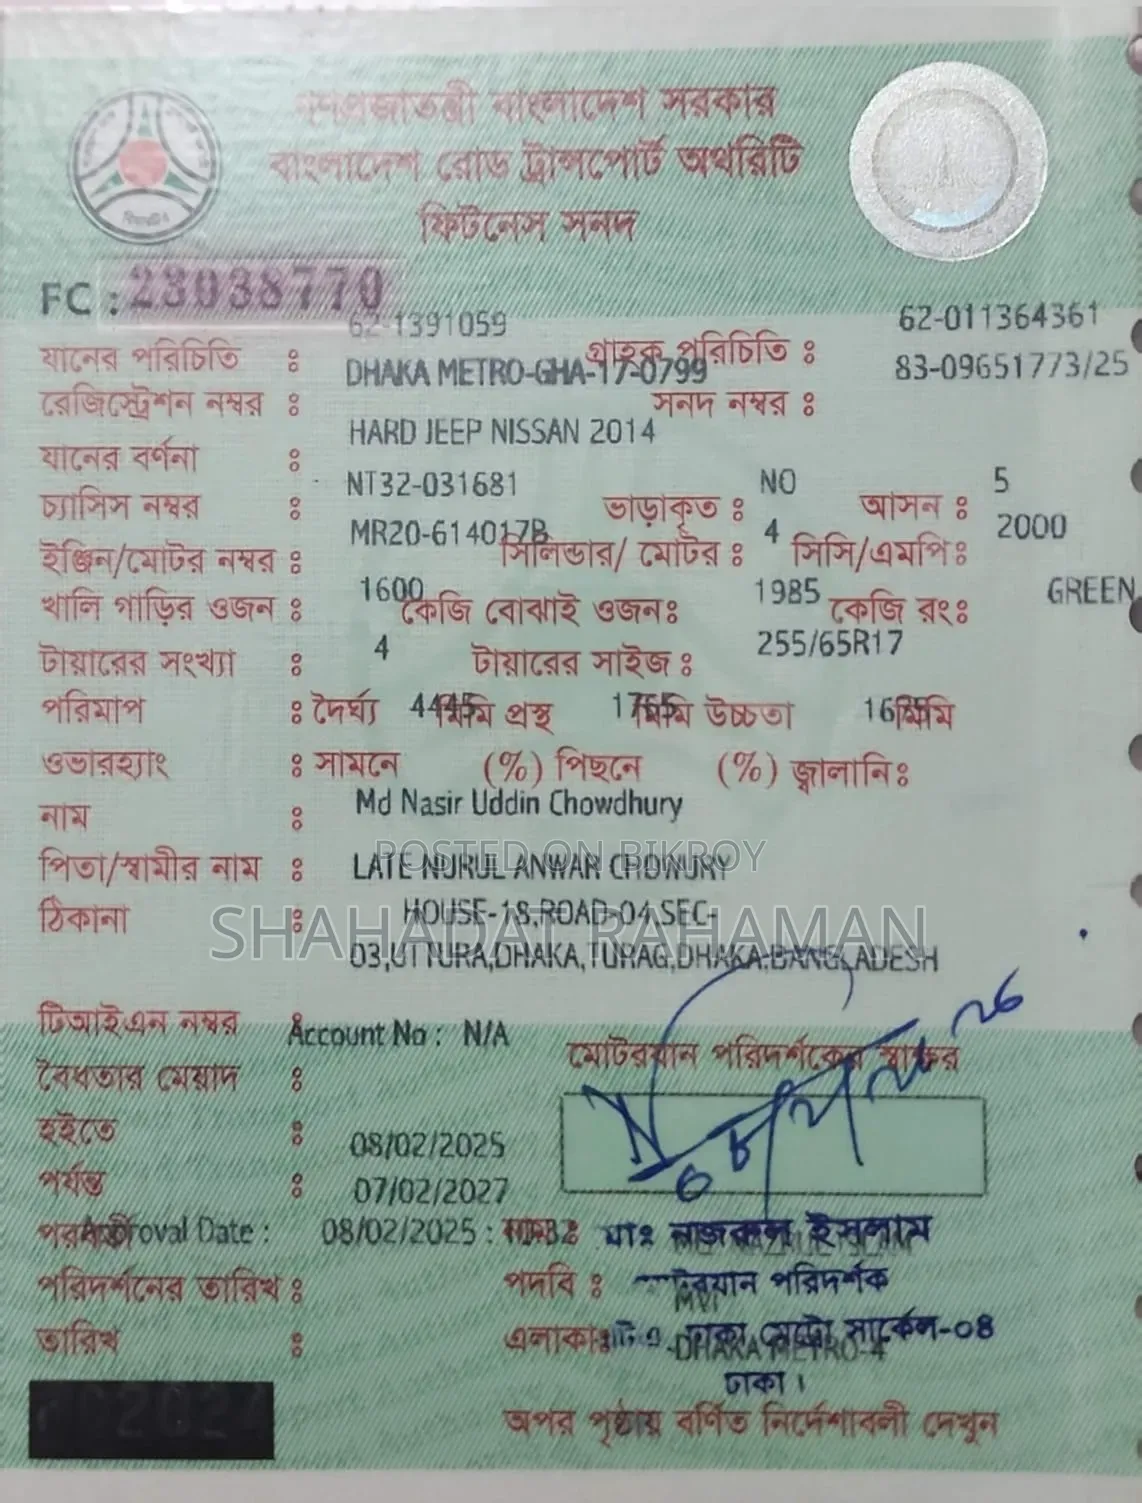 গণপ্রজাতন্ত্রী বাংলাদেশ সরকার
বাংলাদেশ রোড ট্রান্সপোর্ট অথরিটি
ফিটনেস সনদ
FC : 23038770
যানের পরিচিতি : 62-1391059 গ্রাহক পরিচিতি : 62-011364361
রেজিস্ট্রেশন নম্বর : DHAKA METRO-GHA-17-0799 সনদ নম্বর : 83-09651773/25
যানের বর্ণনা : HARD JEEP NISSAN 2014
চ্যাসিস নম্বর : NT32-031681 ভাড়াকৃত : NO আসন : 5
ইঞ্জিন/মোটর নম্বর : MR20-614017B সিলিন্ডার/ মোটর : 4 সিসি/এমপি: 2000
খালি গাড়ির ওজন : 1600 কেজি বোঝাই ওজন: 1985 কেজি রং: GREEN
টায়ারের সংখ্যা : 4 টায়ারের সাইজ : 255/65R17
পরিমাপ : দৈর্ঘ্য 4445 মিমি প্রস্থ 1765 মিমি উচ্চতা মিমি
ওভারহ্যাং : সামনে (%) পিছনে (%) জ্বালানি:
নাম : Md Nasir Uddin Chowdhury
POSTED ON BIKROY
পিতা/স্বামীর নাম : LATE NURUL ANWAR CHOWURY
SHAHADAT RAHAMAN
ঠিকানা : HOUSE-18,ROAD-04,SEC-
03,UTTURA,DHAKA,TURAG,DHAKA,BANGLADESH
টিআইএন নম্বর : Account No : N/A
মোটরযান পরিদর্শকের স্বাক্ষর
বৈধতার মেয়াদ :
হইতে : 08/02/2025
পর্যন্ত : 07/02/2027
পরবর্তী Approval Date : 08/02/2025 : নাম : মোঃ নাজরুল ইসলাম
পরিদর্শনের তারিখ : পদবি : মোটরযান পরিদর্শক
MVI
তারিখ : এলাকা: ঢাকা মেট্রো সার্কেল-০৪
DHAKA METRO-4
ঢাকা।
অপর পৃষ্ঠায় বর্ণিত নির্দেশাবলী দেখুন